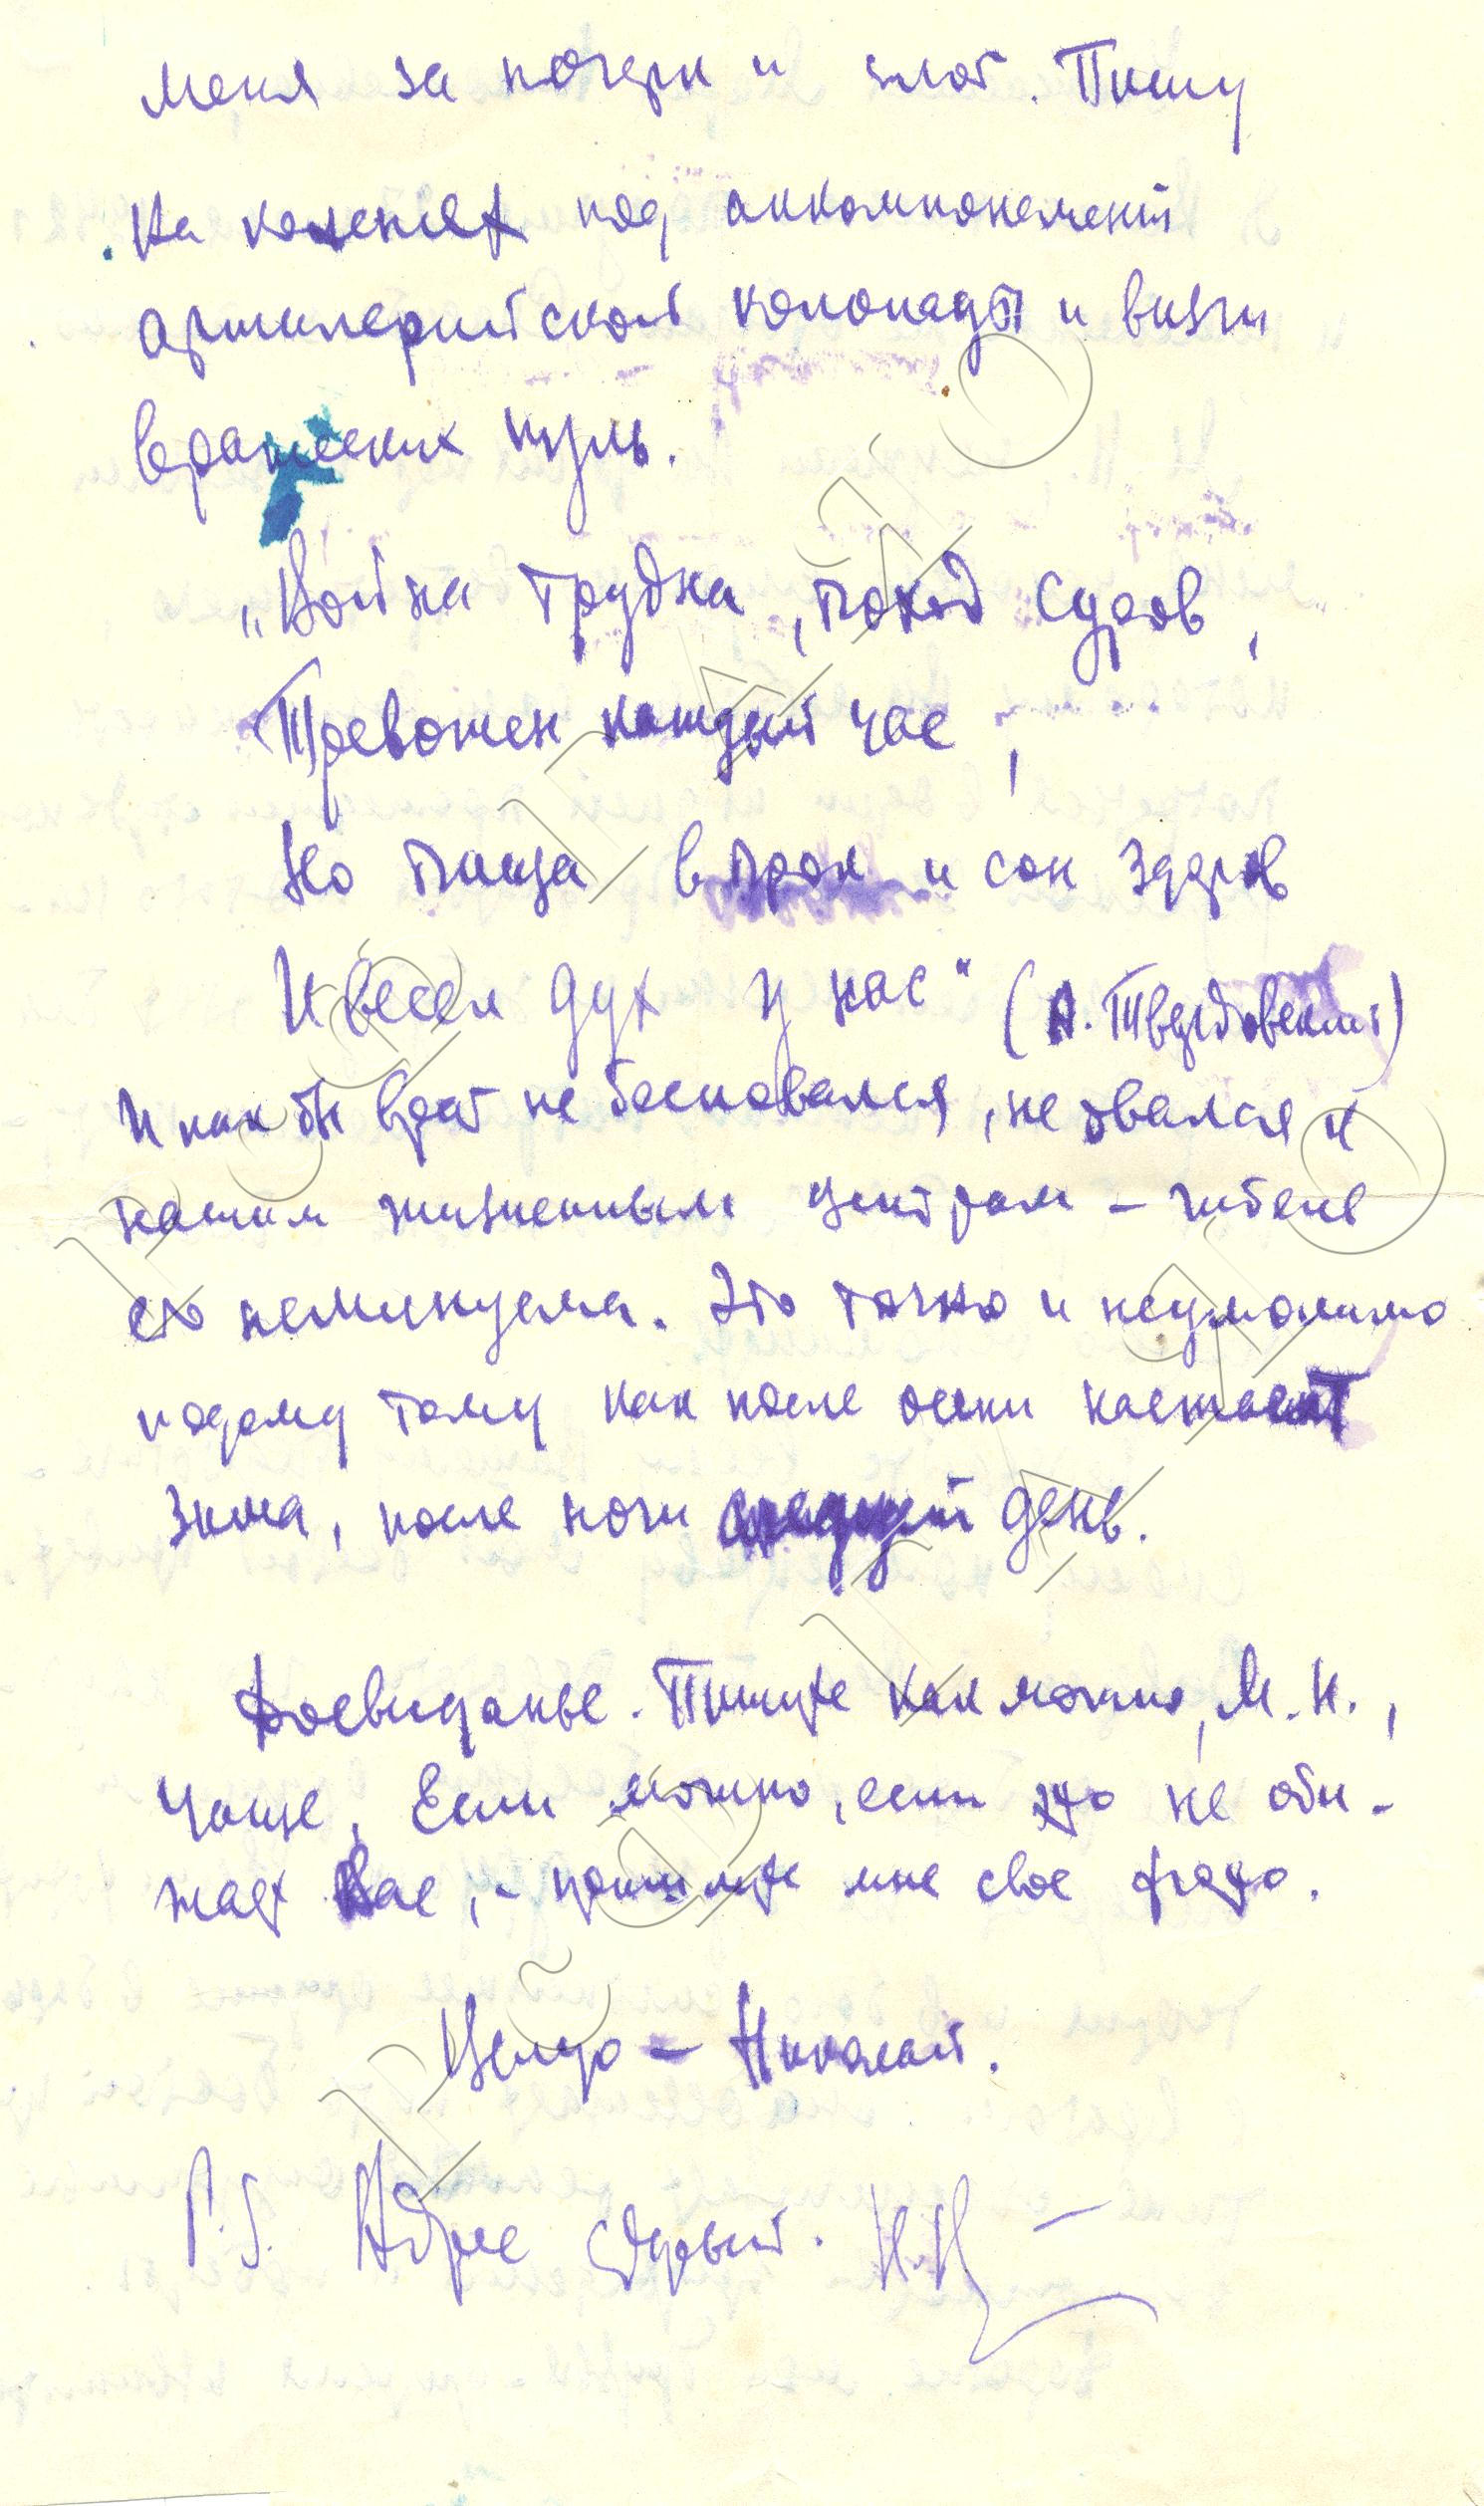 меня за почерк и слог. Пишу
на коленях под аккомпонемент
артиллерийской кононады и визги
вражеских пуль.
„Война трудна, поход суров,
Тревожен каждый час,
Но пища впрок и сон здоров
И весел дух у нас“ (А. Твардовский)
И как бы враг не бесновался, не рвался к
нашим жизненным центрам – гибель
его неминуема. Это точно и неумолимо
подому тому как после осени настает
зима, после ночи следует день.
Досвиданье. Пишите как можно, М. Н.,
чаще. Если можно, если это не оби-
жает Вас, – пошлите мне свое фото.
Целую – Николай.
P.S. Адрес старый.
РГАЛИ